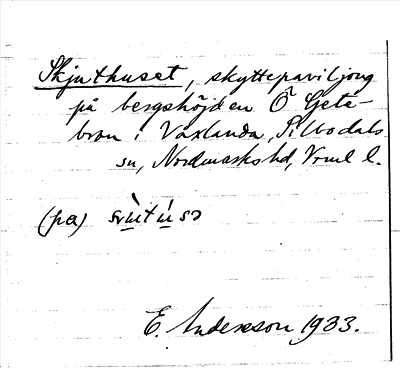 Skjuthuset, skyttepaviljong
på bergshöjden Ö Gete-
bron i Vaxlanda, Silbodals
sn, Nordmarks hd, Vrml l.
(på)
E. Andersson 1933.